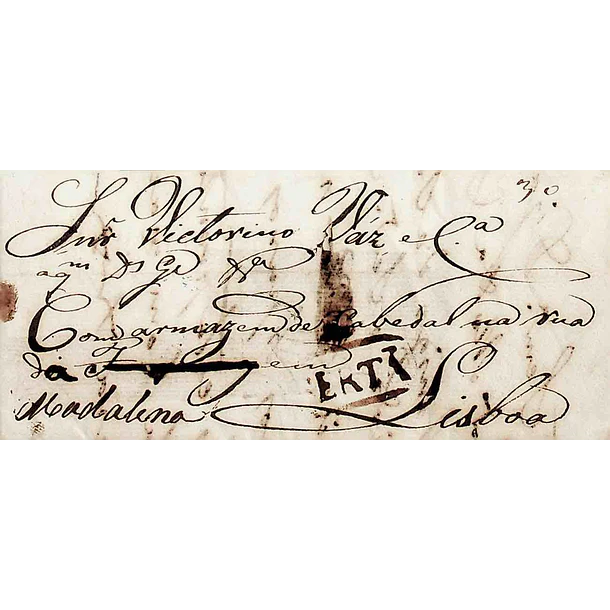 3,0
Snr Victorino Váz e C.ª
aqm Ds Ge
Com armazem de Cabedal na rua
da em
ERTÃ
Madalena Lisboa